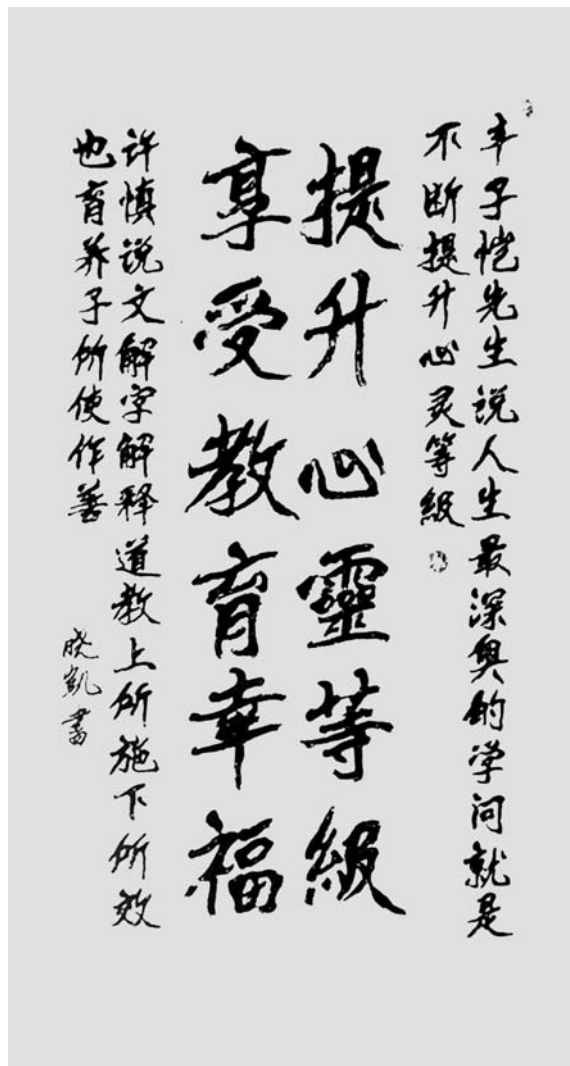 丰子恺先生说人生最深奥的学问就是
不断提升心灵等级
提升心靈等級
享受教育幸福
许慎说文解字解释道教上所施下所效
也育养子所使作善
晓凯書